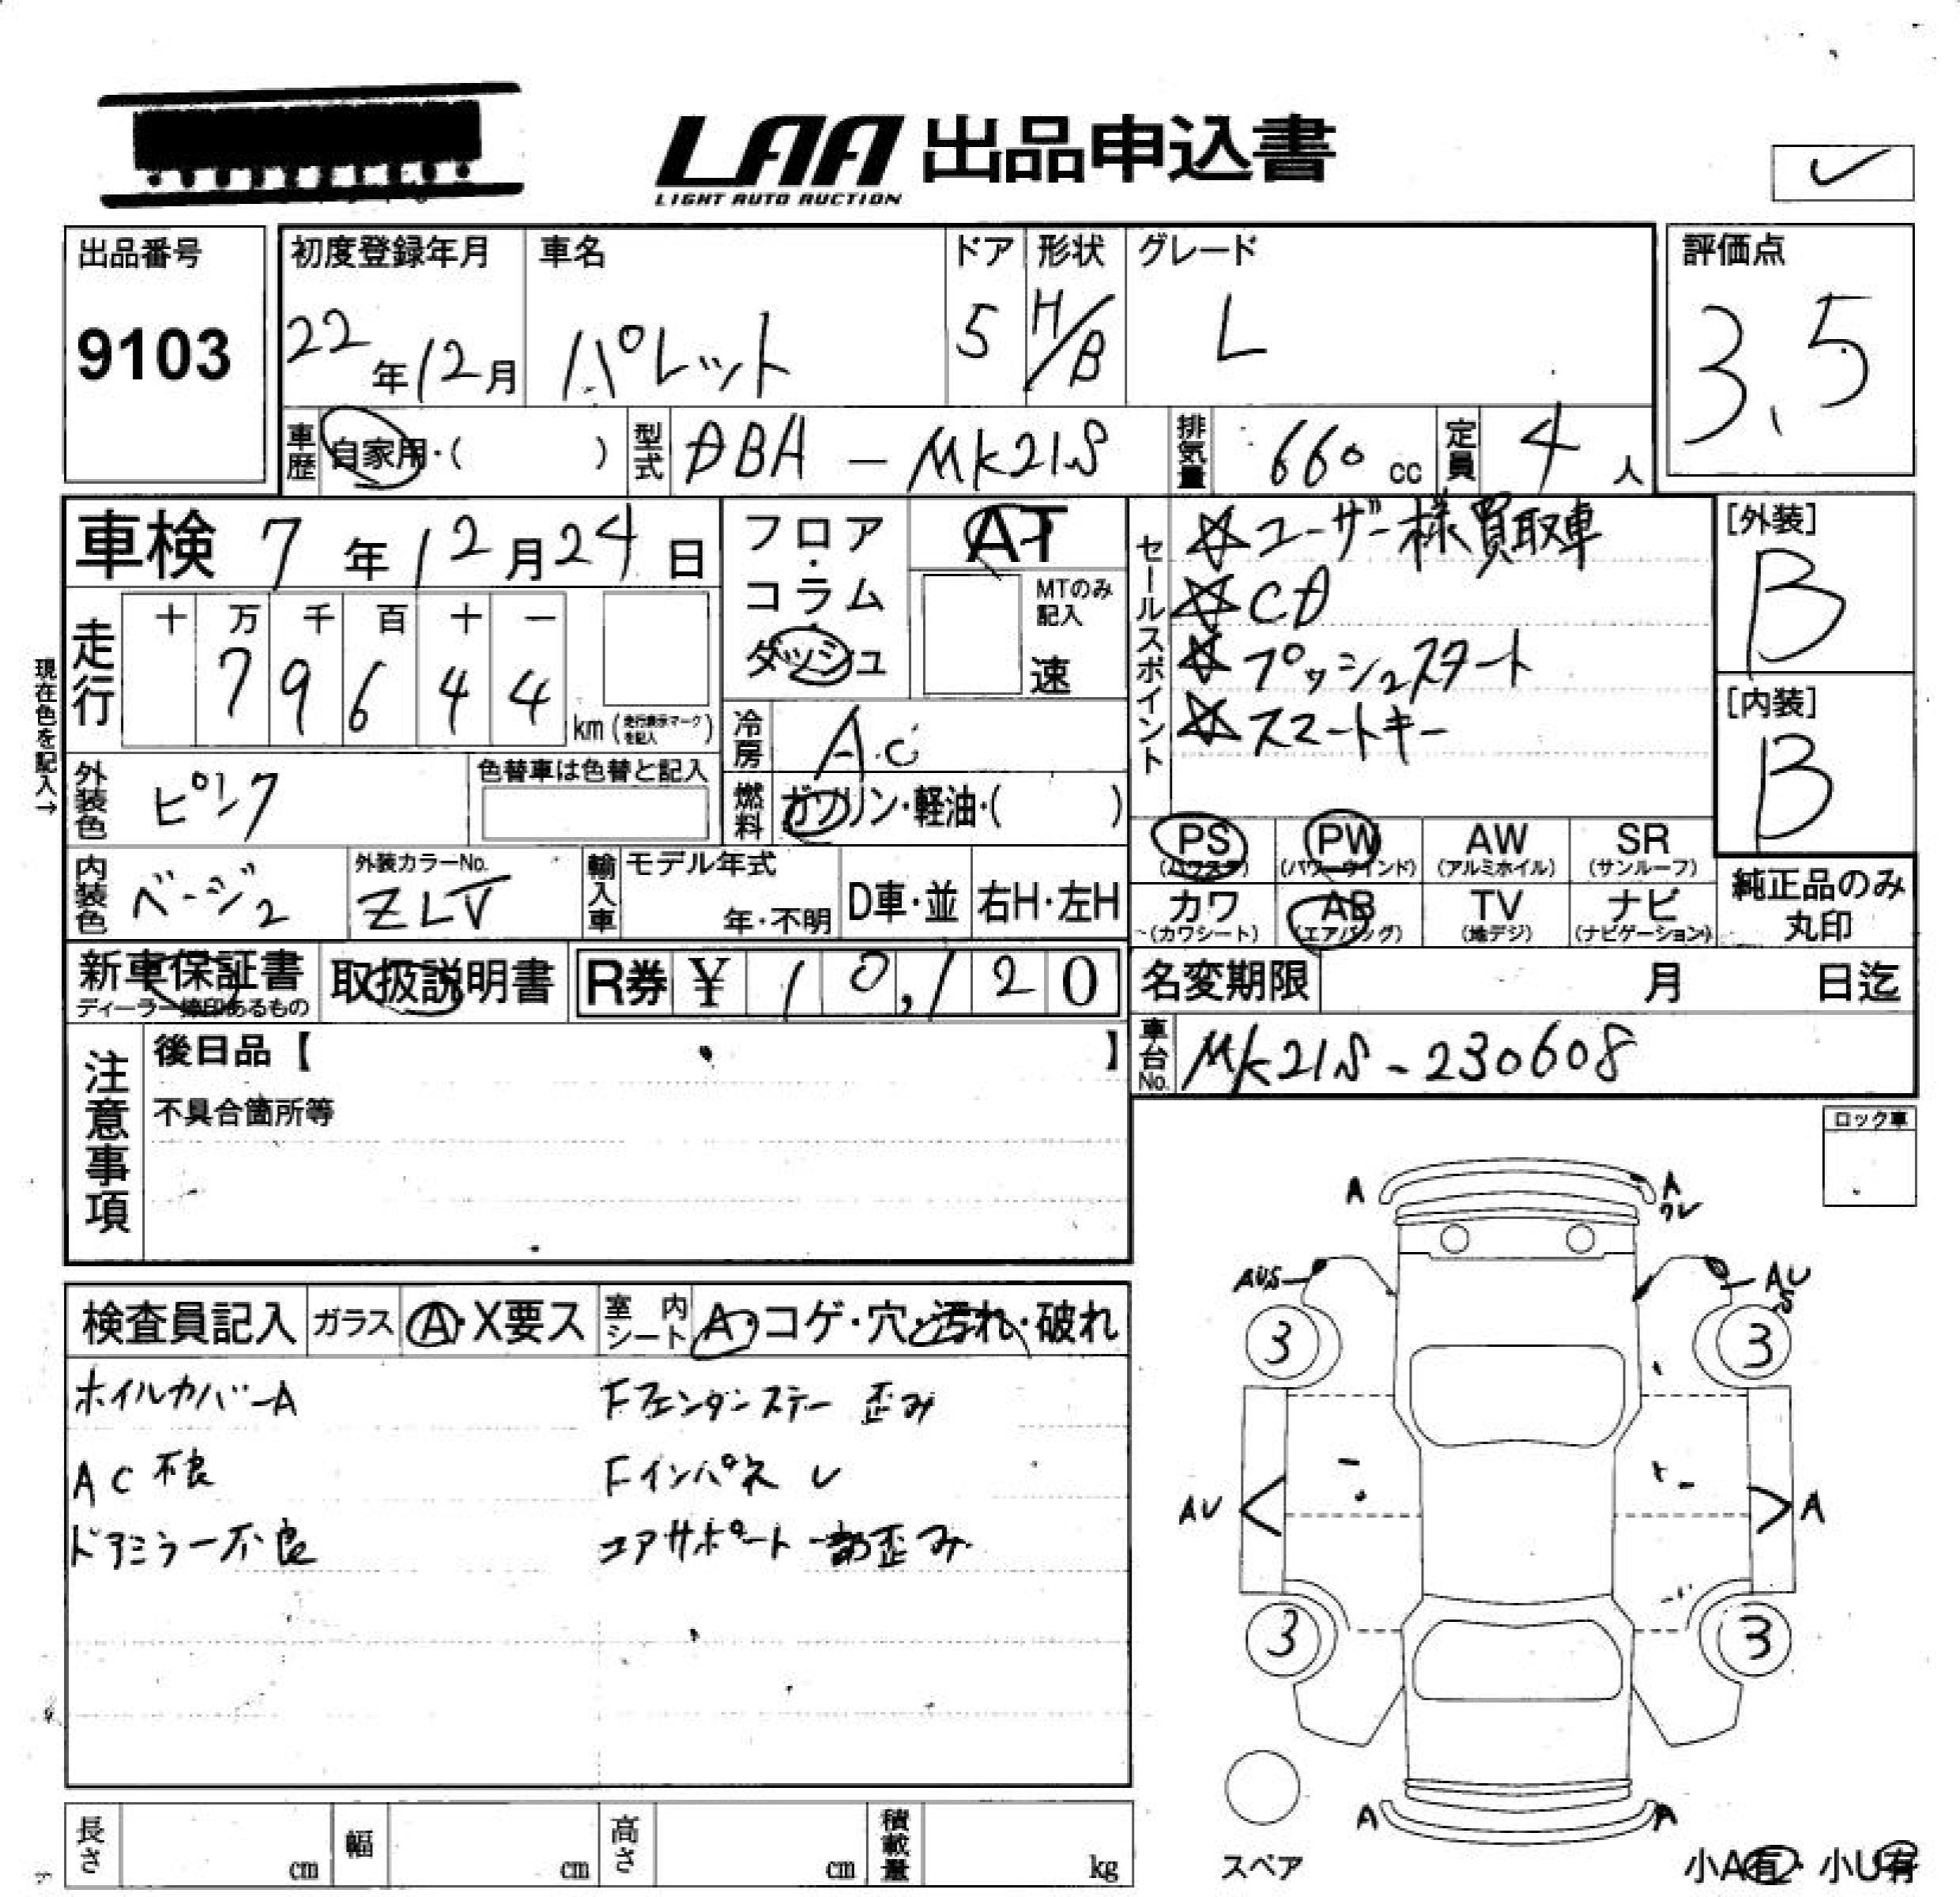 LAA 出品申込書
LIGHT AUTO AUCTION
出品番号
9103
初度登録年月
22年12月
車名
パレット
ドア
5
形状
H/B
グレード
L
評価点
3.5
車歴
自家用・( )
型式
DBA-MK21S
排気量
660 cc
定員
4人
車検 7年12月24日
フロア・コラム
ダッシュ
AT
MTのみ記入
速
セールスポイント
☆ユーザー様買取車
☆CD
☆プッシュスタート
☆スマートキー
[外装]
B
[内装]
B
現在色を記入→
走行
十 万 千 百 十 一
7 9 6 4 4
km (走行表示マークを記入)
冷房
A.C
外装色
ピンク
色替車は色替と記入
燃料
ガソリン・軽油・( )
PS (パワステ)
PW (パワーウインド)
AW (アルミホイル)
SR (サンルーフ)
カワ (カワシート)
AB (エアバッグ)
TV (地デジ)
ナビ (ナビゲーション)
純正品のみ丸印
内装色
ベージュ
外装カラーNo.
ZLV
輸入車
モデル年式
年・不明
D車・並
右H・左H
新車保証書
ディーラー捺印あるもの
取扱説明書
R券 ¥ 10,120
名変期限 月 日迄
車台No.
MK21S-230608
注意事項
後日品【 】
不具合箇所等
ロック車
検査員記入
ガラス
A・X要ス
室内シート
A・コゲ・穴・汚れ・破れ
ホイルカバーA
Fフェンダーステー 歪み
AC不良
Fインパネ レ
ドアミラー不良
コアサポート 一部歪み
A
A
ワレ
AUS
AU
S
3
3
AU
A
3
3
A
A
スペア
小A有・小U有
長さ cm
幅 cm
高さ cm
積載量 kg